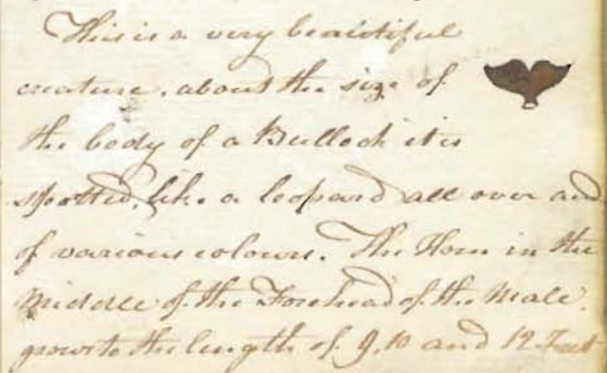 This is a very beautiful
creature, about the size of
the body of a Bullock it is
spotted, like a leopard all over and
of various colours. The Horn in the
Middle of the Forehead of the Male.
grows to the length of 9, 10 and 12 Feet